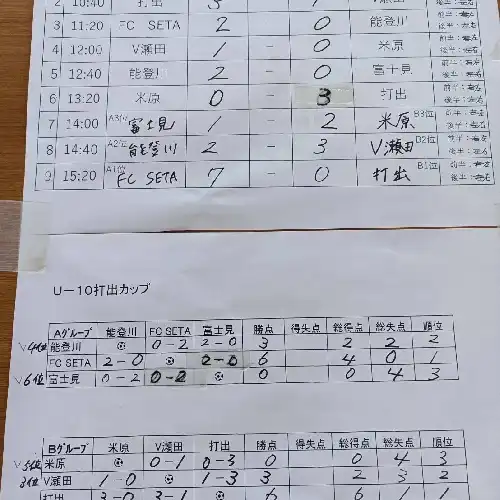 2 10:40 打出 3 - 1 V瀬田
3 11:20 FC SETA 2 - 0 能登川 前半:右左 後半:左右
4 12:00 V瀬田 1 - 0 米原 前半:右左 後半:左右
5 12:40 能登川 2 - 0 富士見 前半:右左 後半:左右
6 13:20 米原 0 - 3 打出 前半:右左 後半:左右
7 14:00 A3位 富士見 1 - 2 米原 B3位 前半:右左 後半:左右
8 14:40 A2位 能登川 2 - 3 V瀬田 B2位 前半:右左 後半:左右
9 15:20 A1位 FC SETA 7 - 0 打出 B1位 前半:右左 後半:左右
U-10打出カップ
Aグループ 能登川 FC SETA 富士見 勝点 得失点 総得点 総失点 順位
V4位 能登川 0-2 2-0 3 2 2 2
FC SETA 2-0 2-0 6 4 0 1
V6位 富士見 0-2 0-2 0 0 4 3
Bグループ 米原 V瀬田 打出 勝点 得失点 総得点 総失点 順位
V5位 米原 0-1 0-3 0 0 4 3
3位 V瀬田 1-0 1-3 3 2 3 2
打出 3-0 3-1 6 6 1 1